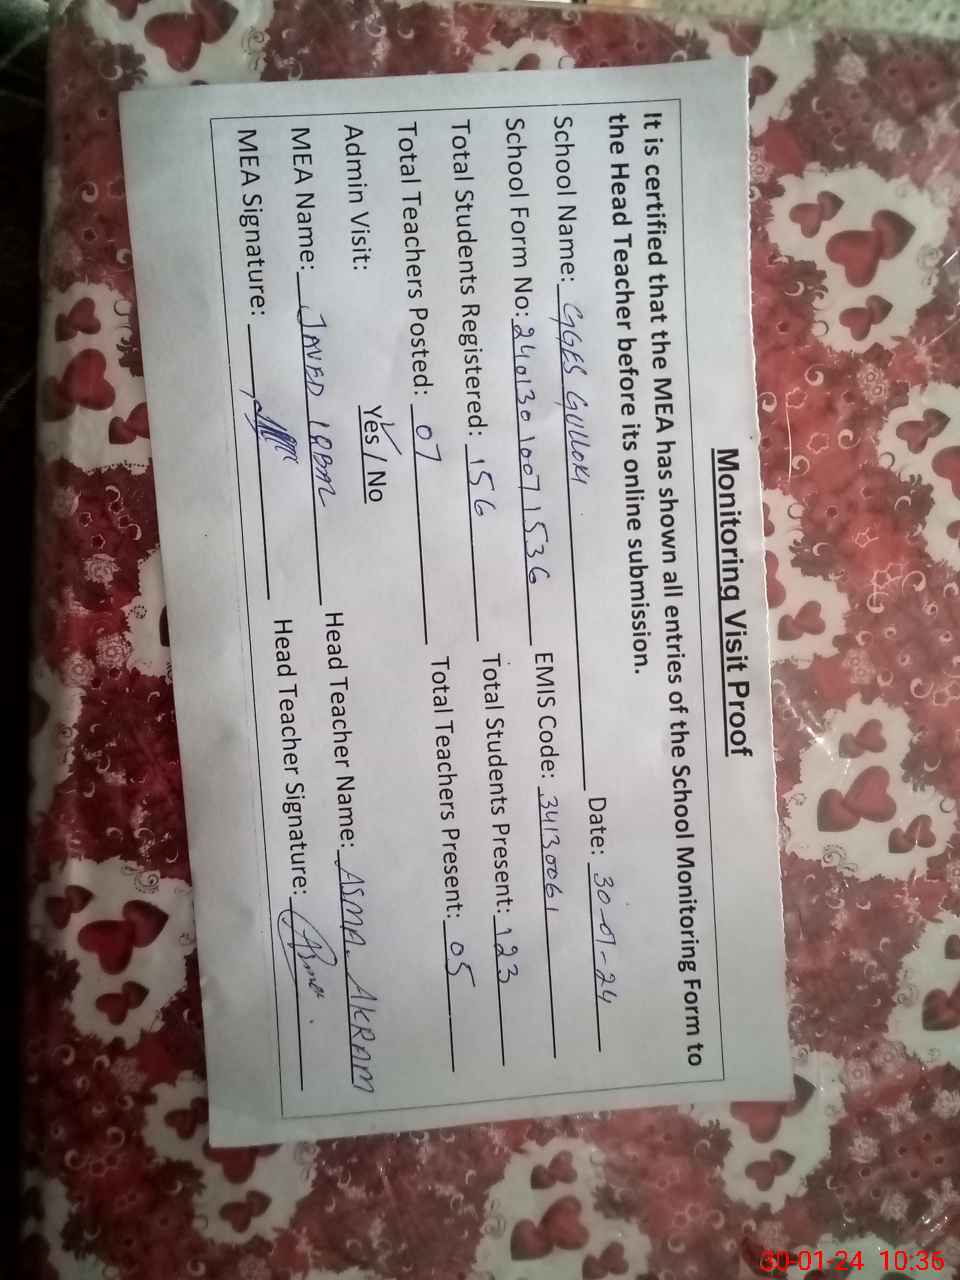 Monitoring Visit Proof
It is certified that the MEA has shown all entries of the School Monitoring Form to
the Head Teacher before its online submission.
School Name: GGES GULLOKI Date: 30-01-24
School Form No: 240130 1007 1536 EMIS Code: 34130061
Total Students Registered: 156 Total Students Present: 123
Total Teachers Posted: 07 Total Teachers Present: 05
Admin Visit: Yes / No
MEA Name: JAVED IQBAL Head Teacher Name: ASMA. AKRAM
MEA Signature: Head Teacher Signature: Asma
30-01-24 10:36